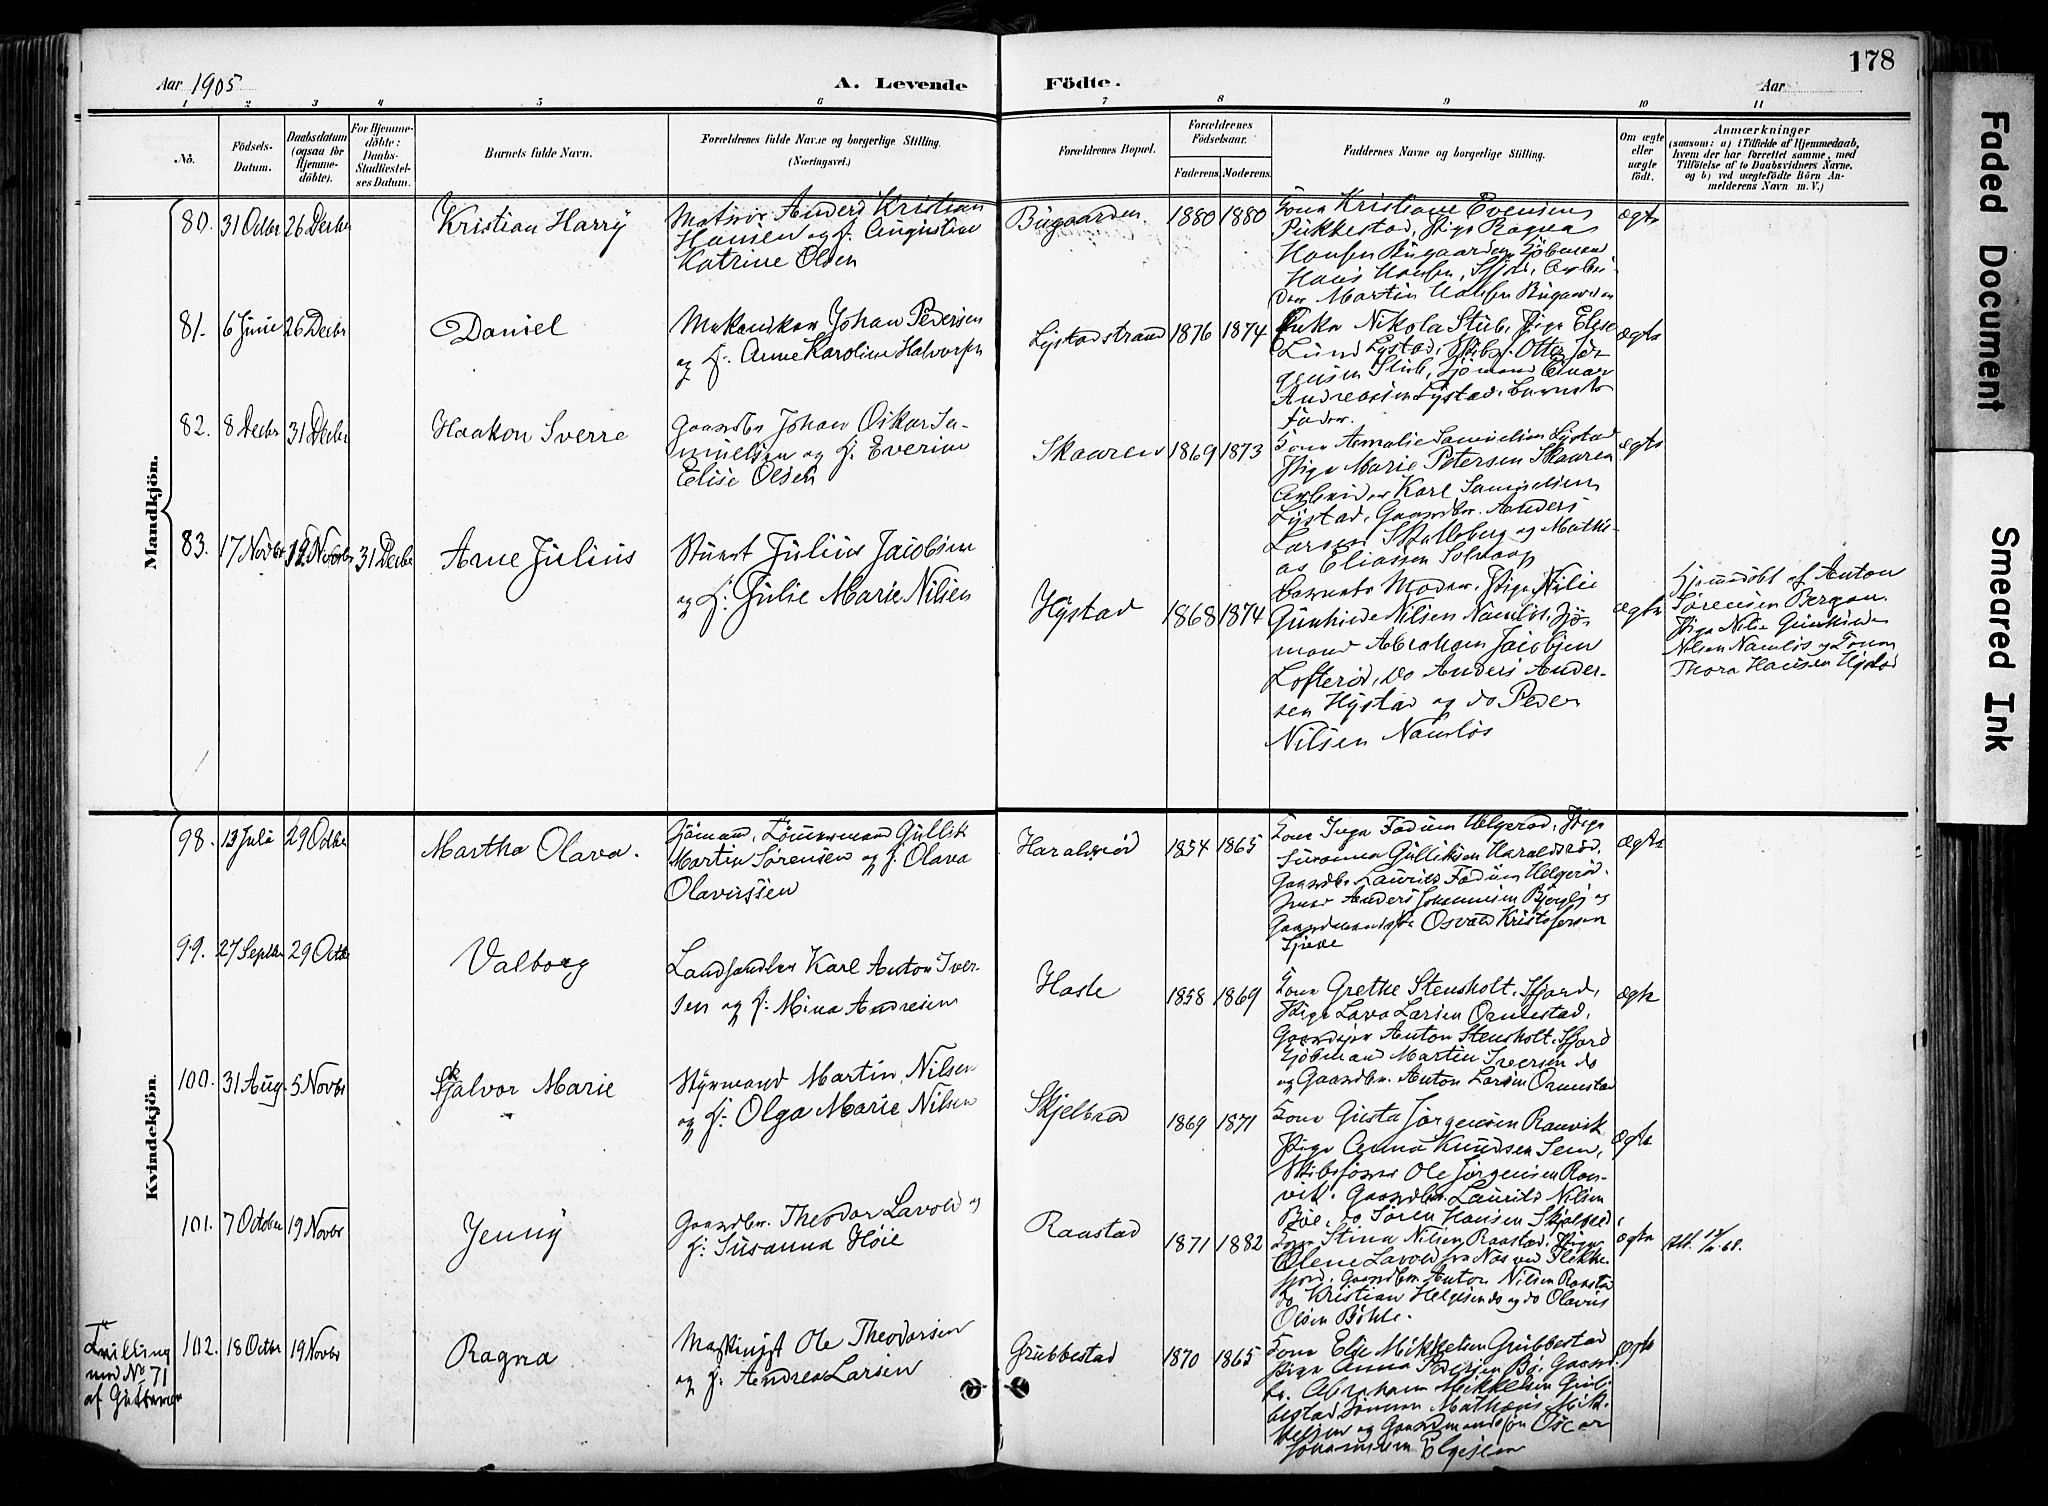 178
Aar 1905
A. Levende
Födte.
Aar
1 2 3 4 5 6 7 8 9 10 11
No.
Födsels-
Datum.
Daabsdatum
(ogsaa for
Hjemme-
döbte).
For Hjemme-
döbte:
Daabs-
Stadfæstel-
ses Datum.
Barnets fulde Navn.
Forældrenes fulde Navne og borgerlige Stilling.
(Næringsvei.)
Forældrenes Bopæl.
Forældrenes
Födselsaar.
Faderens.
Moderens.
Faddernes Navne og borgerlige Stilling.
Om ægte
eller
uægte
födt.
Anmærkninger
(saasom: a) i Tilfælde af Hjemmedaab,
hvem der har forrettet samme, med
Tilföielse af to Daabsvidners Navne.
og b) ved uægtefödte Börn An-
melderens Navn m. V.)
Mandkjön.
80. 31 Octbr 26 Decbr
Kristian Harry
Matros Anders Kristian
Hansen og h. Augustine
Katrine Olsen
Bugaarden
1880 1880
Kona Kristiane Evensen
Pukkestad, Pige Ragna
Hansen Bugaarden, Gjöbmand
Hans Hansen, Fjord, Arbei-
der Martin Hansen Bugaarden
ægte
81. 6 Juni 26 Decbr
Daniel
Mekaniker Johan Pedersen
og h. Anne Karoline Halvorsen
Lystadstrand
1876 1874
Enke Nikola Stub, Pige Elise
Lund Lystad, Skibsf. Otto Jör-
gensen Stub, Sjömand Einar
Andreassen Lystad, barnets
Fader.
ægte
82. 8 Decbr 31 Decbr
Haakon Sverre
Gaardbr Johan Oskar Sa-
muelsen og h. Everine
Elise Olsen
Skaaren
1869 1873
Kona Amalie Samuelsen Lystad
Pige Marie Petersen Skaaren
Arbeider Karl Samuelsen
Lystad, Gaardbr. Anders
Larsen og Mathi-
as Eliassen
ægte
83. 17 Novbr 19 Novbr 31 Decbr
Arne Julius
Stuert Julius Jacobsen
og h: Julie Marie Nilsen
Hystad
1868 1874
barnets Moder, Pige Nilie
Gunhilde Nilsen Namlös, Sjö-
mand Abraham Jacobsen
Lofteröd, do Anders Ander-
sen Hystad og do Peder
Nilsen Namlös
ægte
Hjemmedöbt af Anton
Sörensen Bergan.
Pige Nilie Gunhilde
Nilsen Namlös og Kona
Thora Hansen Hystad
Kvindekjön.
98. 13 Juli 29 Octbr
Martha Olava.
Sjömand, Tömmermand Gullik
Martin Sörensen og h. Olava
Olavussen
Haraldsröd
1854 1865
Kona Inga Fadum Helgeröd, Pige
Susanna Gulliksen Haraldsröd,
Gaardbr Laurits Fadum Helgeröd.
Anders Johannesen og
Gaardmands. Osvald Kristofersen
ægte
99. 27 Septbr 29 Octbr
Valborg
Landhandler Karl Anton Iver-
sen og h: Mina Andresen
Hasle
1858 1869
Kona Grethe Stensholt, Fjord,
Pige Lava Larsen Ormestad,
Gaardeier Anton Stensholt, Fjord
Gjöbmand Martin Iversen do
og Gaardbr. Anton Larsen Ormestad
ægte
100. 31 Aug. 5 Novbr
Hjalvor Marie
Styrmand Martin Nilsen
og h: Olga Marie Nilsen
Skjelbred
1869 1871
Kona Gusta Jörgensen Ranvik
Pige Anna Knudsen Sem,
Skibsförer Ole Jörgensen Ran-
vik. Gaardbr. Laurits Nilsen
Böe, do Sören Hansen Skjelbred
ægte
101. 7 October 19 Novbr
Jenny
Gaardbr. Theodor Lavold og
h: Susanna Höie
Raastad
1871 1882
Kona Stina Nilsen Raastad, Pige
Olene Lavold fra Næs ved Flekke-
fjord, Gaardbr Anton Nilsen Raastad
do Kristian Helgesen do og do Olavus
Olsen Böhle.
ægte
Tvilling
med No 71
af Guttene
102. 18 Octbr 19 Novbr
Ragna
Maskinist Ole Theodorsen
og h. Andrea Larsen
Grubbestad
1870 1865
Kona Else Mikkelsen Grubbestad
Pige Anna Pedersen Bö, Gaard-
br. Abraham Mikkelsen Grub-
bestad, Mathæus Mik-
kelsen og Gaardmandssön Oscar
Johannesen
ægte
Faded Document
Smeared Ink